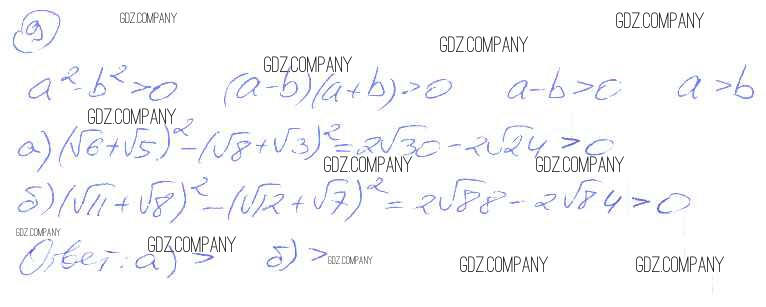 GDZ.COMPANY GDZ.COMPANY
9 GDZ.COMPANY
GDZ.COMPANY
a² - b² > 0 (a-b)(a+b) > 0 a-b > 0 a > b
GDZ.COMPANY
а) (√6+√5)² - (√8+√3)² = 2√30 - 2√24 > 0
GDZ.COMPANY GDZ.COMPANY
б) (√11 + √8)² - (√12 + √7)² = 2√88 - 2√84 > 0
GDZ.COMPANY GDZ.COMPANY
Ответ: а) > б) >
GDZ.COMPANY GDZ.COMPANY GDZ.COMPANY